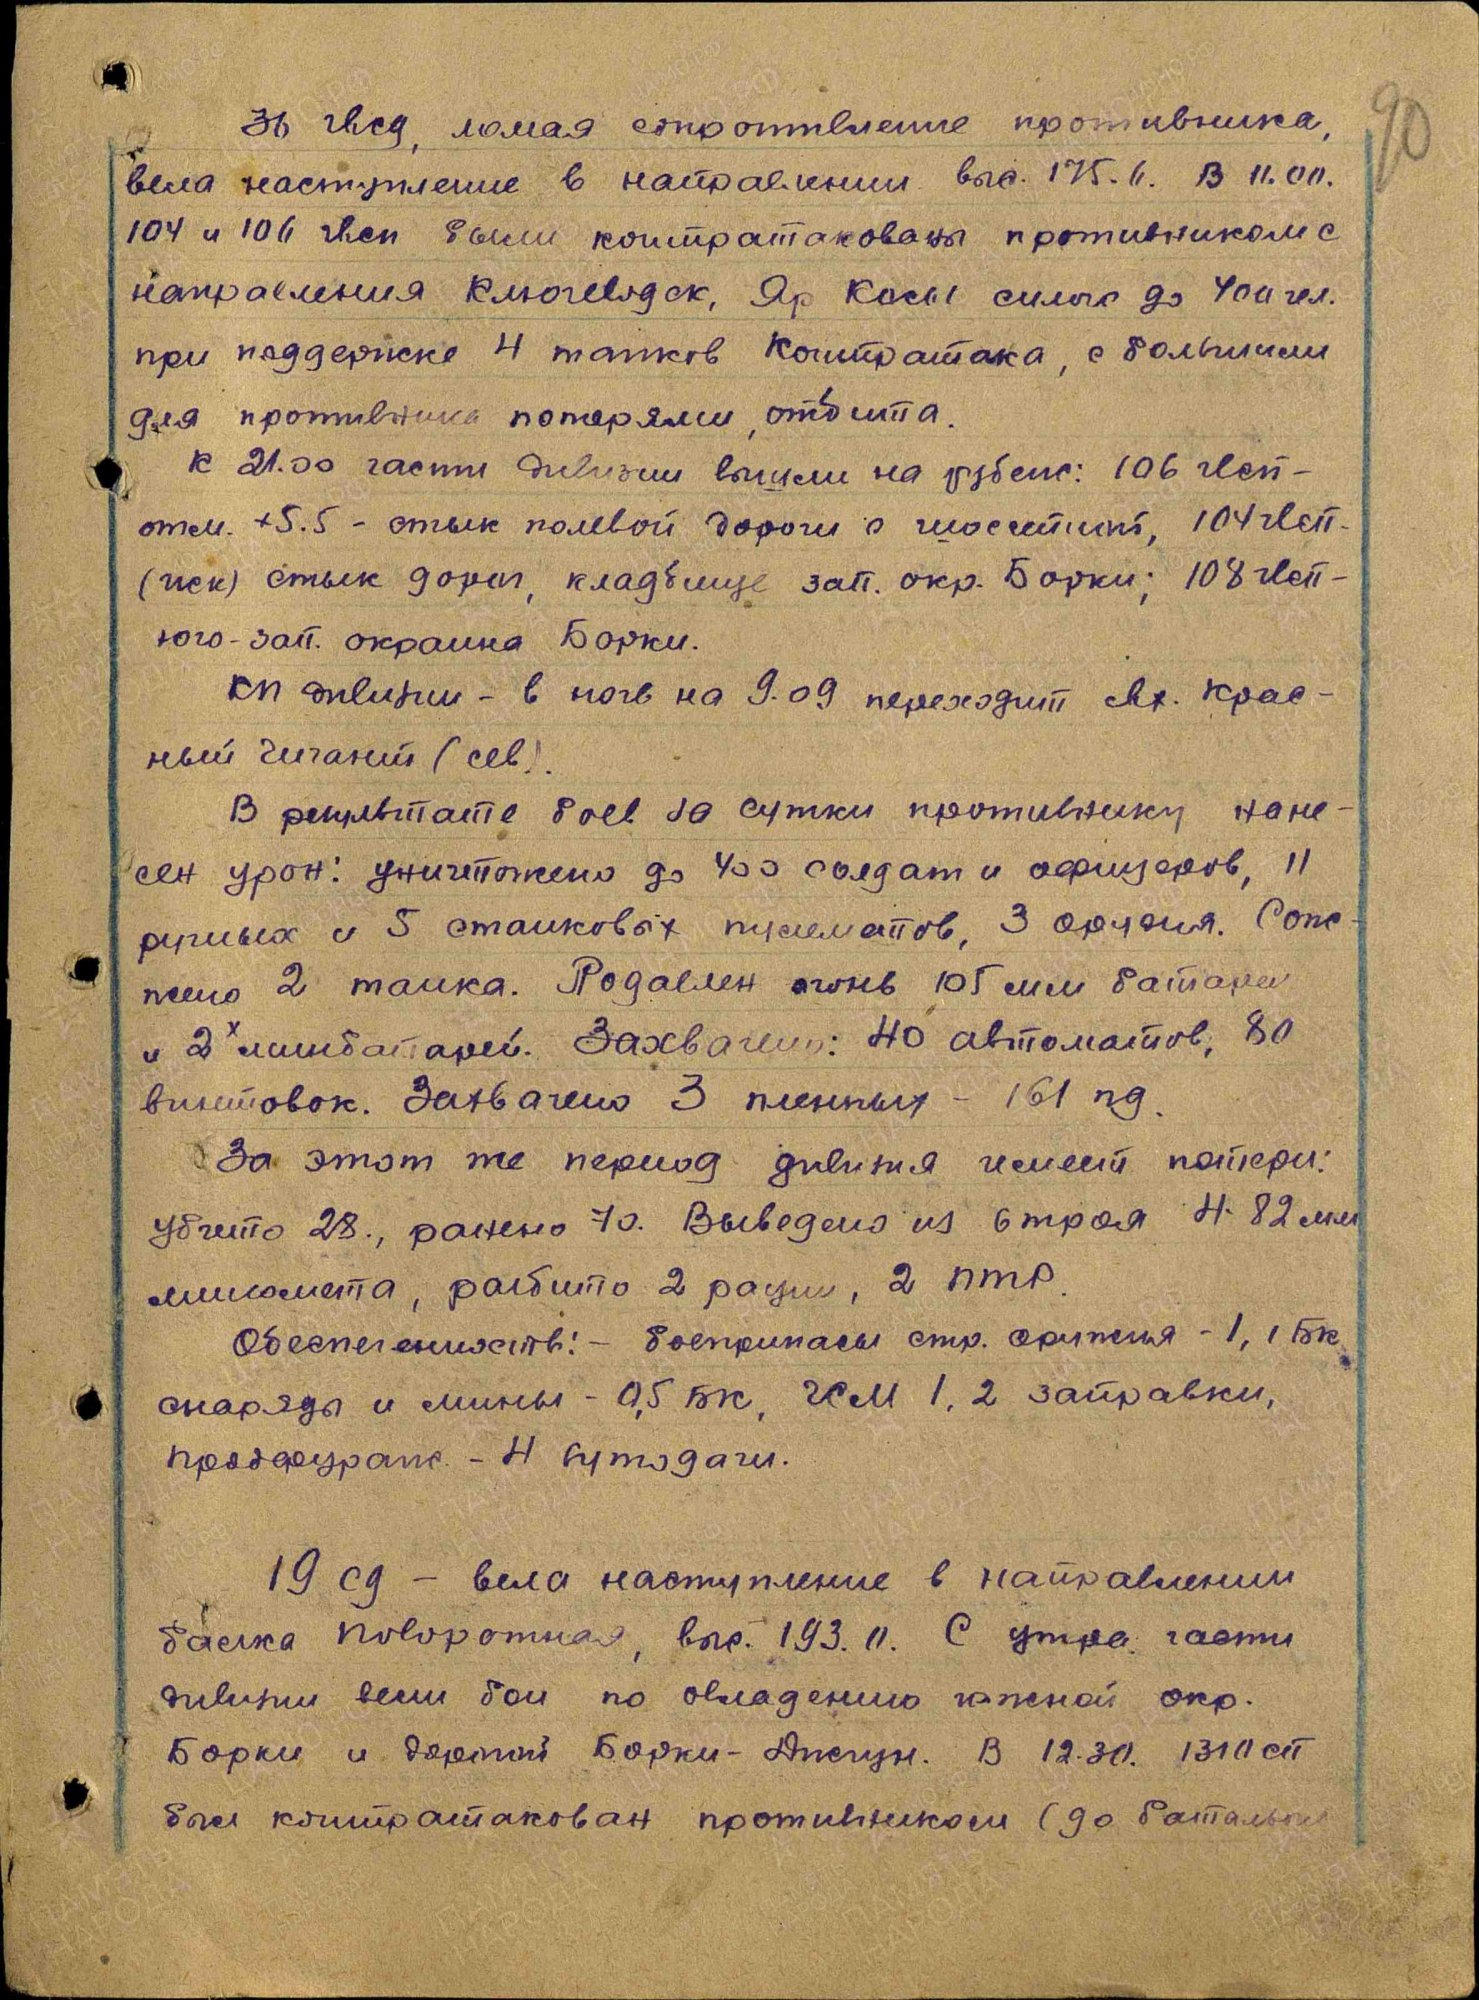 90
36 гвсд, ломая сопротивление противника,
вела наступление в направлении выс. 175.6. В 11.00.
104 и 106 гвсп были контратакованы противником с
направления Ключеводск, Яр Косы силою до 400 чел.
при поддержке 4 танков Контратака, с большими
для противника потерями, отбита.
К 21.00 части дивизии вышли на рубеж: 106 гвсп-
отм. +5.5 - стык полевой дороги с шоссейной, 104 гвсп-
(иск) стык дорог, кладбище зап. окр. Борки; 108 гвсп-
юго-зап. окраина Борки.
КП дивизии - в ночь на 9.09 переходит свх. Крас-
ный Гигант (сев).
В результате боев за сутки противнику нане-
сен урон: уничтожено до 400 солдат и офицеров, 11
ручных и 5 станковых пулеметов, 3 орудия. Сож-
жено 2 танка. Подавлен огонь 105 мм батареи
и 2х минбатарей. Захвачено: 40 автоматов, 80
винтовок. Захвачено 3 пленных - 161 пд.
За этот же период дивизия имеет потери:
убито 28., ранено 70. Выведено из строя 4 82 мм
миномета, разбито 2 рации, 2 ПТР.
Обеспеченность: - боеприпасы стр. оружия - 1,1 БК
снаряды и мины - 0,5 БК, ГСМ 1,2 заправки,
продфураж - 4 сутодачи.
19 сд - вела наступление в направлении
балка Поворотная, выс. 193.0. С утра части
дивизии вели бои по овладению южной окр.
Борки и дорогой Борки- Джгун. В 12.30. 1310 сп
был контратакован противником (до батальона